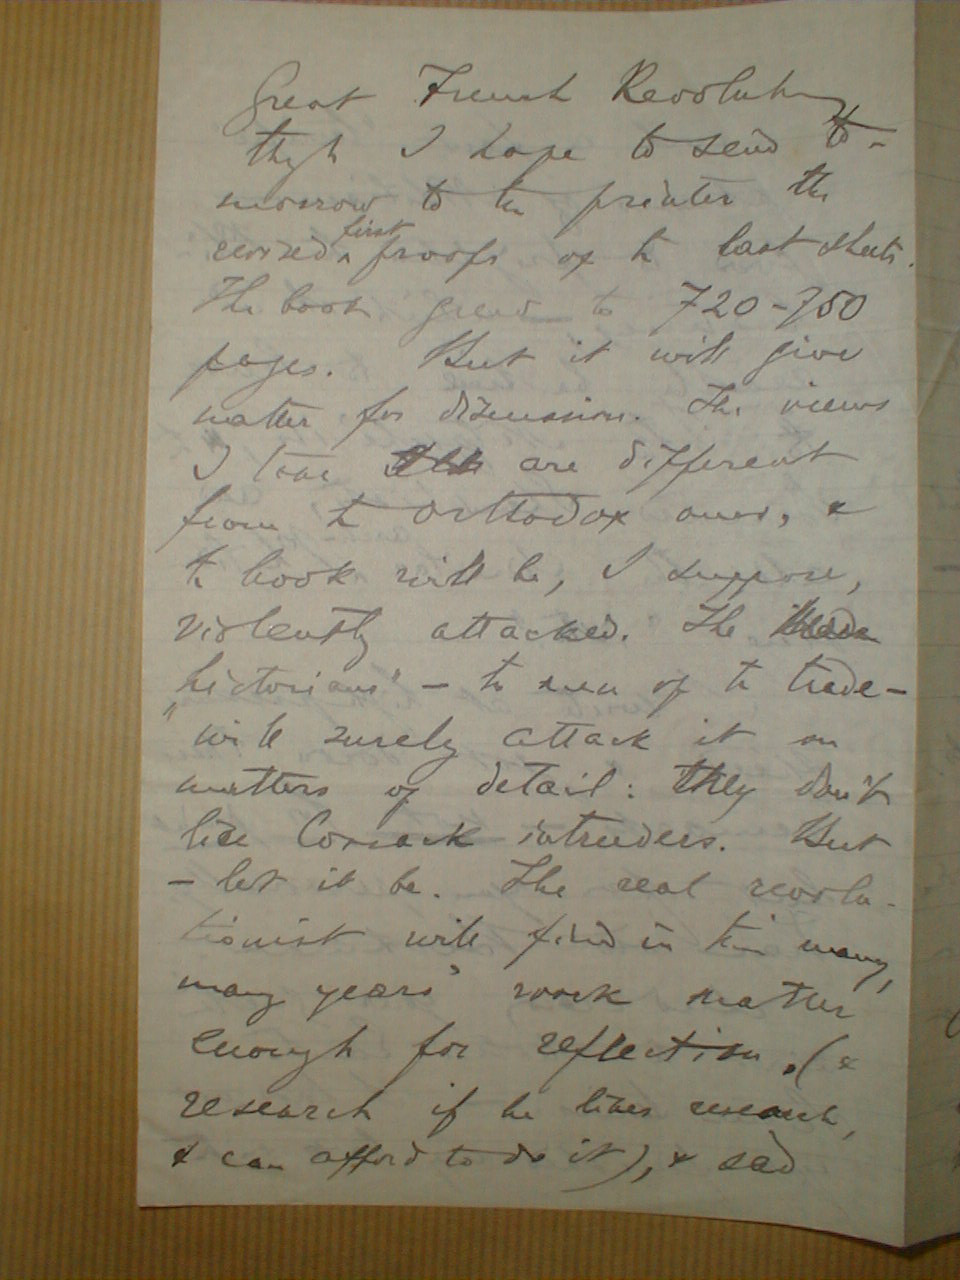 Great French Revolution
thgh I hope to send to-
morrow to the printer the
revised first proofs of th last sheets.
The book grew to 720-750
pages. But it will give
matter for discussion. The views
I take are different
from th orthodox ones, &
th book will be, I suppose,
violently attacked. The
"historians" – th men of th trade –
will surely attack it on
matters of detail: they don't
like Cossack intruders. But
– let it be. The real revolu-
tionist will find in this many,
many years' work matter
enough for reflection. (&
research if he likes research,
& can afford to do it), & sad